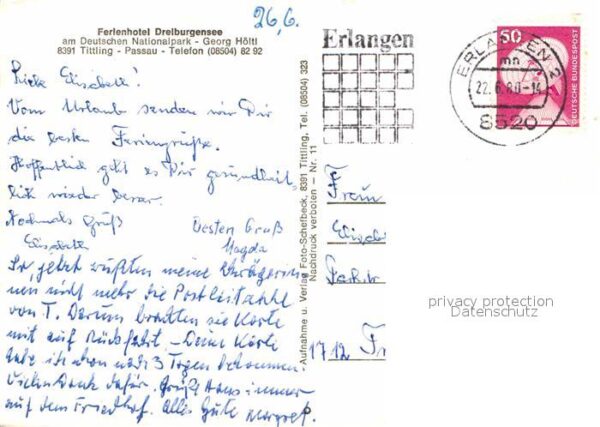 26,6.
Ferienhotel Dreiburgensee
am Deutschen Nationalpark - Georg Höltl
8391 Tittling - Passau - Telefon (08504) 82 92
Liebe Elisabeth!
Vom Urlaub senden wir Dir
die besten Feriengrüße.
Hoffentlich geht es Dir gesundheit
lich wieder besser.
Nochmals Gruß
Elisabeth
Besten Gruß
Magda
So, jetzt wußten meine
nen nicht mehr die Postleitzahl
von T. Darum brachten sie Karte
mit auf Rückfahrt. - Deine Karte
habe ich schon nach 3 Tagen bekommen.
Vielen Dank dafür. Grüße Hans immer
auf dem Friedhof. Alles Gute Margret.
Aufnahme u. Verlag Foto-Schefbeck, 8391 Tittling, Tel. (08504) 323
Nachdruck verboten - Nr. 11
Erlangen
ERLANGEN 2
mn
22.6.80-14
8520
50
DEUTSCHE BUNDESPOST
Frau
Elisab
1712
privacy protection
Datenschutz